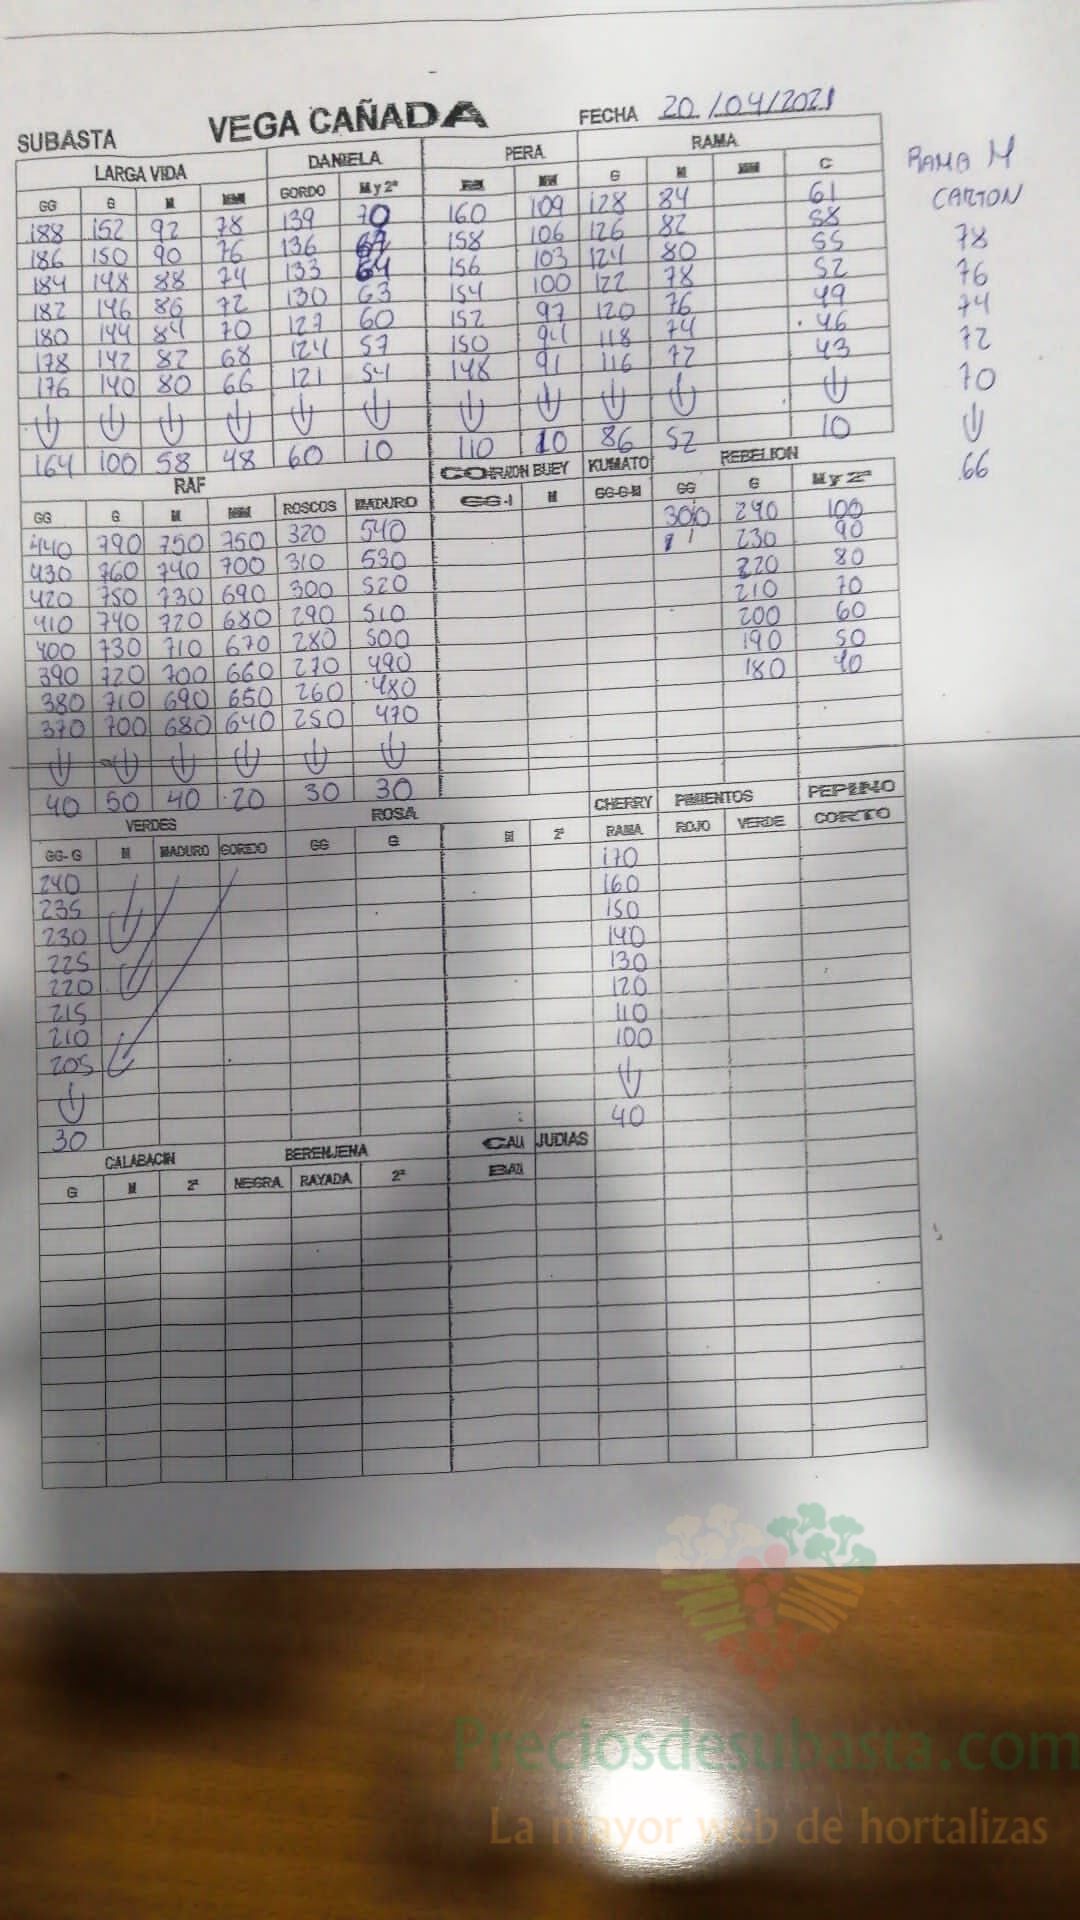 SUBASTA VEGA CAÑADA FECHA 20/04/2021
LARGA VIDA DANIELA PERA RAMA
GG G M MM GORDO M y 2ª M MM G M MM C
188 152 92 78 139 70 160 109 128 84 61
186 150 90 76 136 67 158 106 126 82 58
184 148 88 74 133 64 156 103 124 80 55
182 146 86 72 130 63 154 100 122 78 52
180 144 84 70 127 60 152 97 120 76 49
178 142 82 68 124 57 150 94 118 74 46
176 140 80 66 121 54 148 91 116 72 43
164 100 58 48 60 10 110 10 86 52 10
RAMA M
CARTON
78
76
74
72
70
66
RAF CORAZON BUEY KUMATO REBELION
GG G M MM ROSCOS MADURO GG-1 M GG-G-M GG G M y 2ª
440 790 750 750 320 540 300 240 100
430 760 740 700 310 530 230 90
420 750 730 690 300 520 220 80
410 740 720 680 290 510 210 70
400 730 710 670 280 500 200 60
390 720 700 660 270 490 190 50
380 710 690 650 260 480 180 40
370 700 680 640 250 470
40 50 40 20 30 30
VERDES ROSA CHERRY PIMIENTOS PEPINO
GG-G M MADURO GORDO GG G M 2ª RAMA ROJO VERDE CORTO
240 170
235 160
230 150
225 140
220 130
215 120
210 110
205 100
30 40
CALABACIN BERENJENA CALI JUDIAS
G M 2ª NEGRA RAYADA 2ª
Preciosdesubasta.com
La mayor web de hortalizas